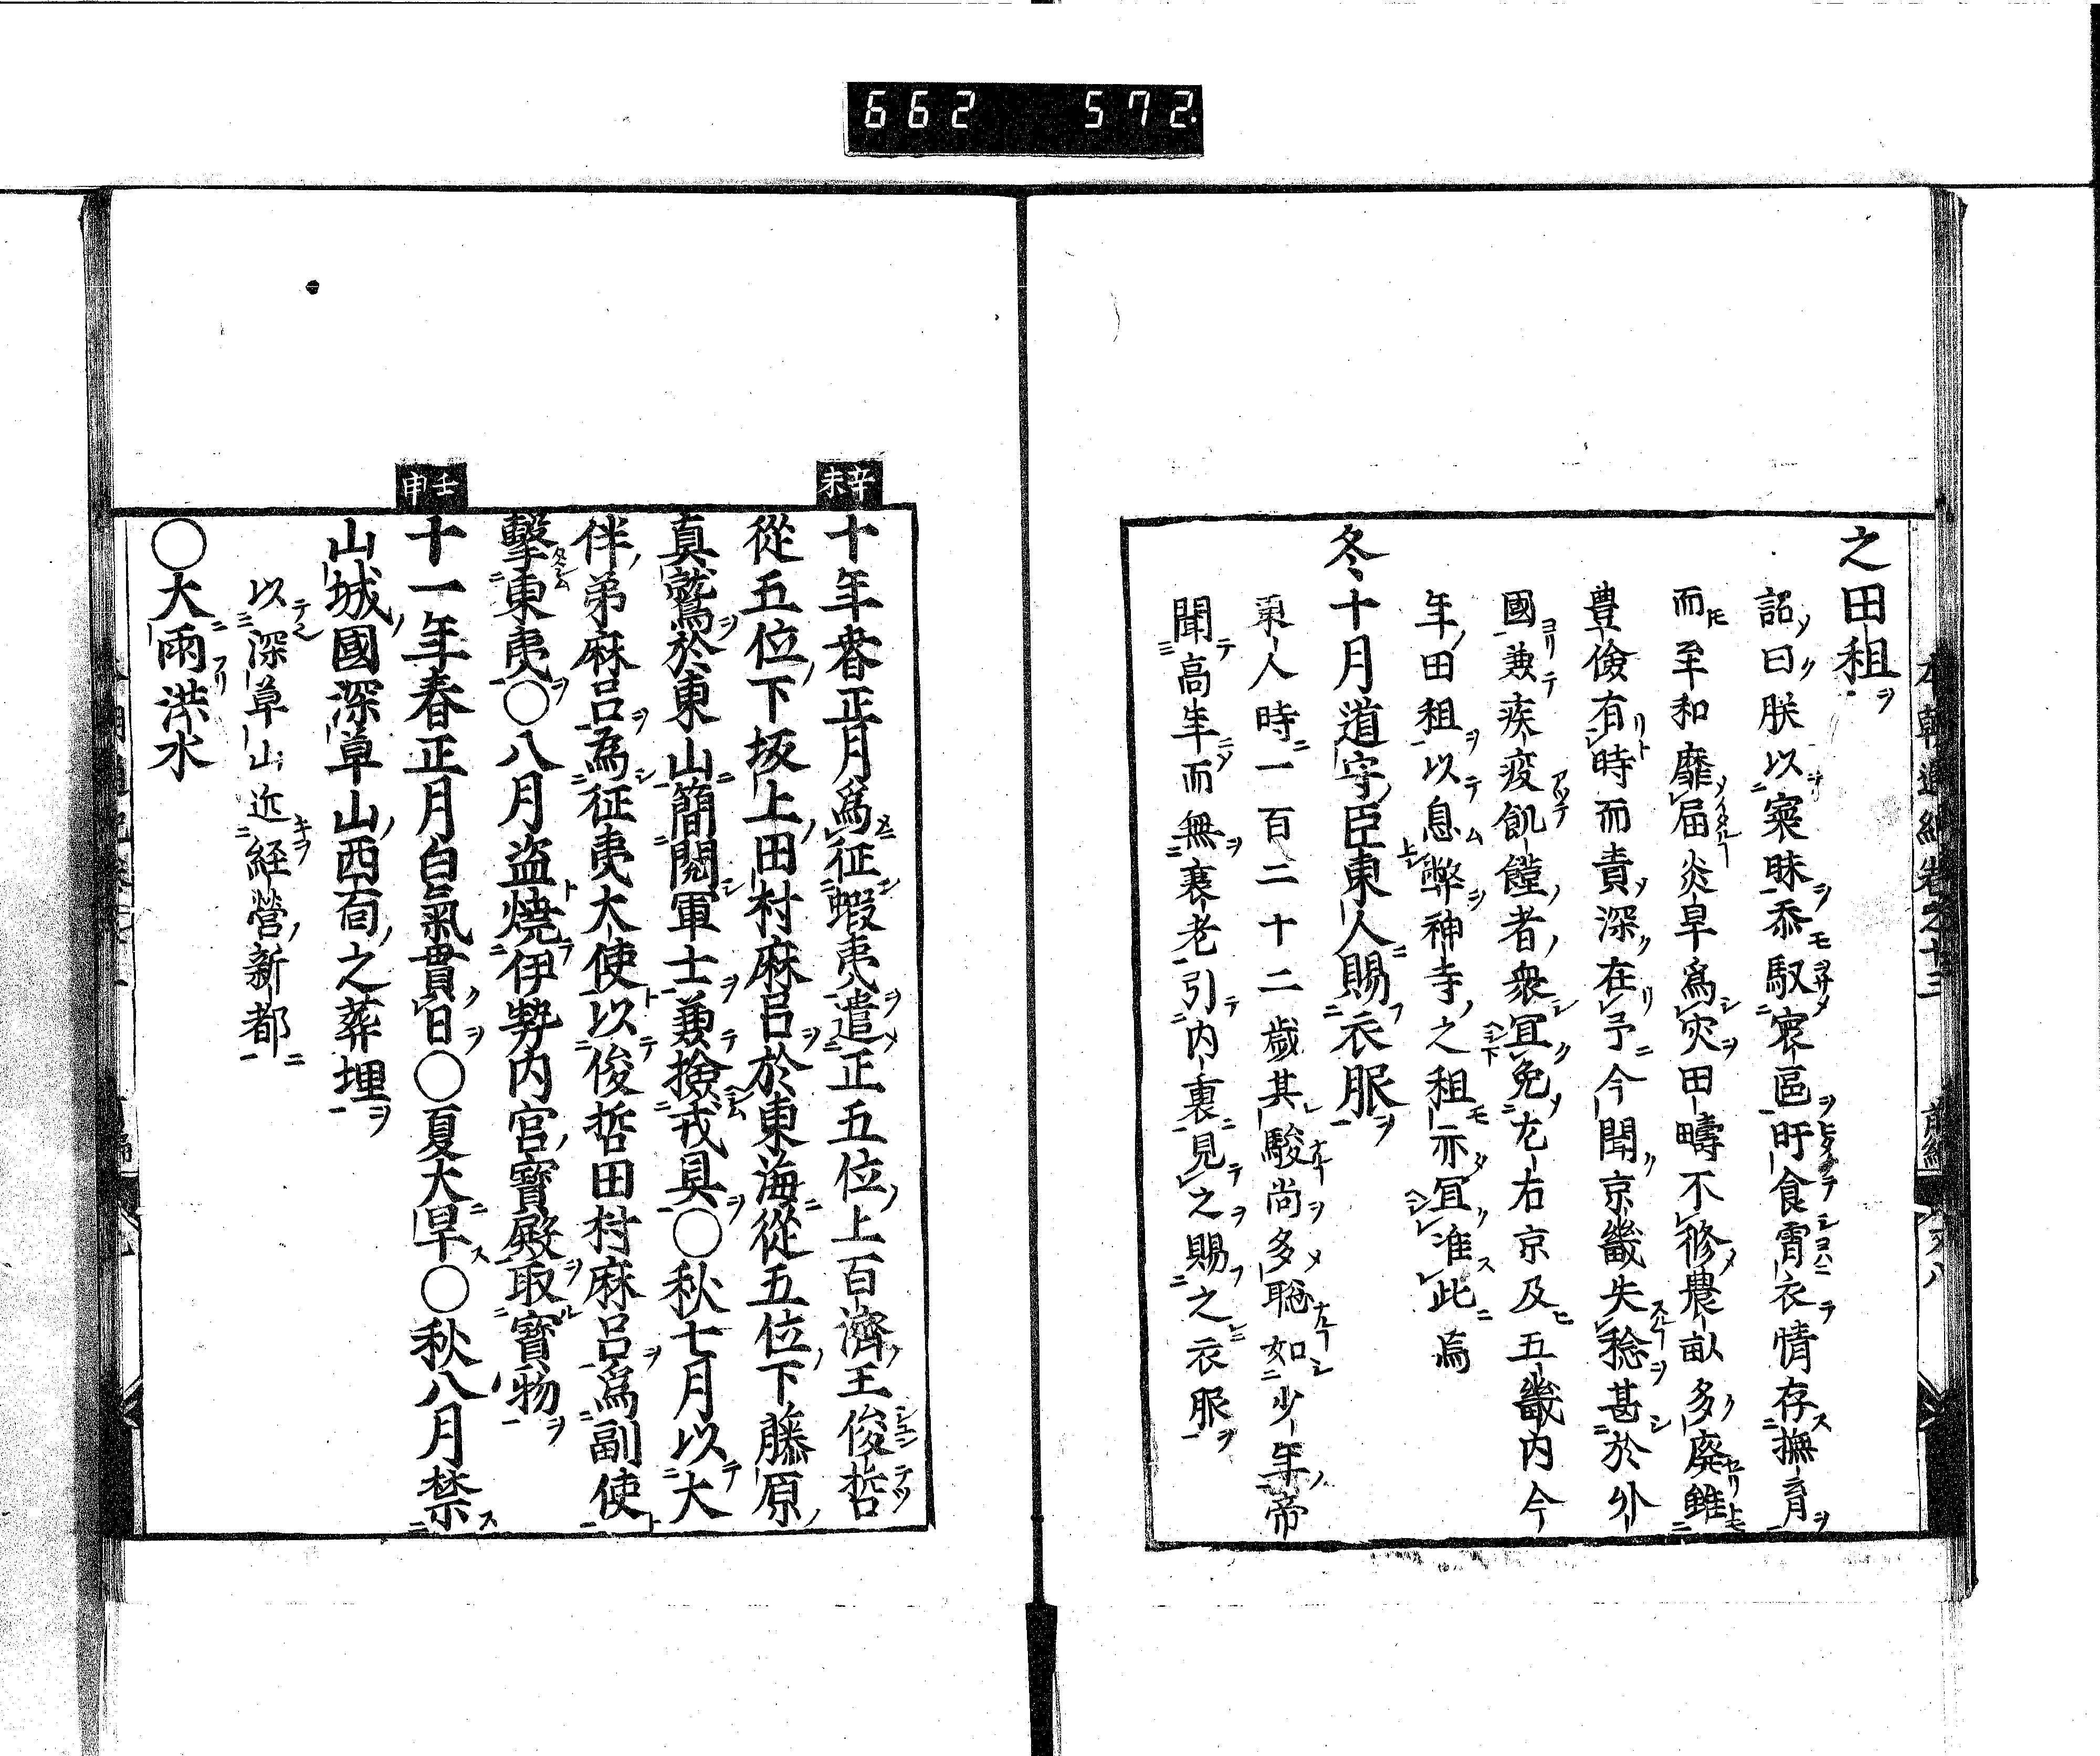 662 572.
本朝通紀卷之十三 前編
之田租
詔曰朕以寡昧忝馭寰區旰食霄衣情存撫育
而至和靡届炎旱為灾田疇不修農畝多廃雖
豊儉有時而責深在予今聞京畿失稔甚於外
國兼疾疫飢饉者衆宜免左右京及五畿内今
年田租以息弊神寺之租亦宜准此焉
冬十月道守臣東人賜衣服
東人時一百二十二歳其駿尚多聡如少年帝
聞高年而無衰老引内裏見之賜之衣服
辛未
十年春正月為征蝦夷遣正五位上百濟王俊哲
從五位下坂上田村麻呂於東海從五位下藤原
真鷲於東山簡閲軍士兼撿戎具〇秋七月以大
伴弟麻呂為征夷大使以俊哲田村麻呂爲副使
擊東夷〇八月盗燒伊勢内宮寳殿取寳物
壬申
十一年春正月白氣貫日〇夏大旱〇秋八月禁
山城國深草山西面之葬埋
以深草山近経營新都
〇大雨洪水